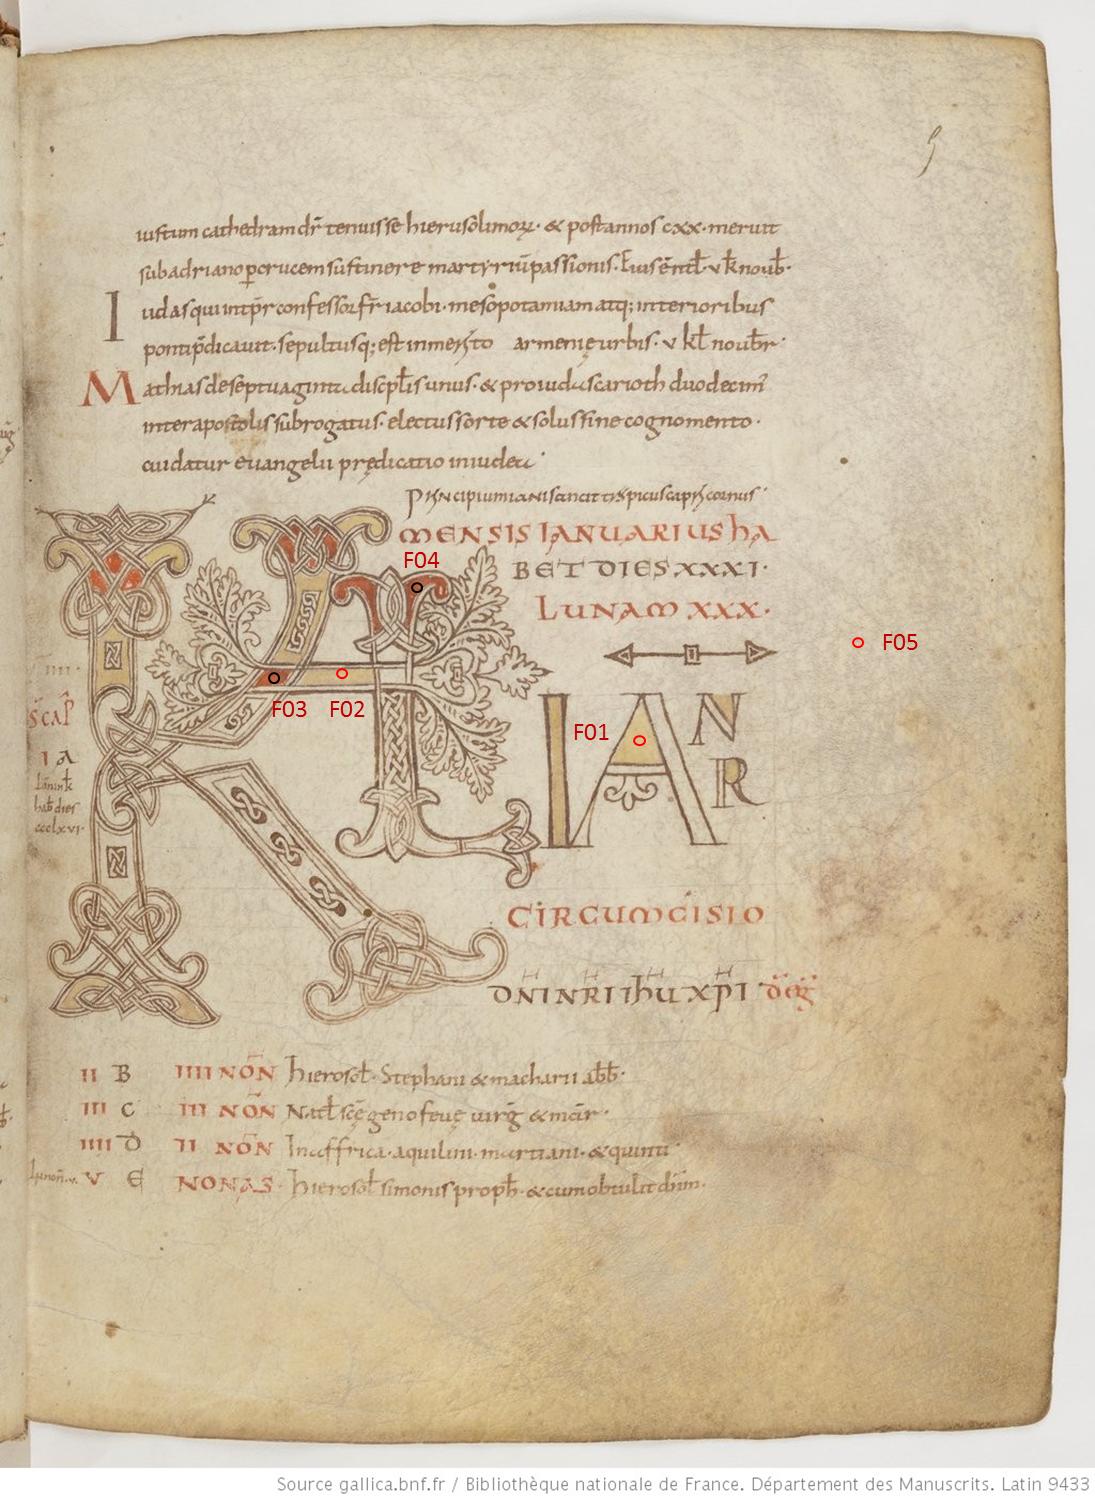 5
iustum cathedram dr̄ tenuisse hierusolimoꝝ· & post annos cxx· meruit
sub adriano ꝑ crucem sustinere martyriū passionis· Eius ēntł· v kł nouƀ·
Iudas qui intp̄r confessor fr̄ iacobi· mesopotamiam atq; interioribus
ponti p̄dicauit· sepultusq; est in meryto armenię urbis· v kł nouƀr·
Mathias de septuaginta discpłis unus· & pro iuda scarioth duodecim̄
inter apostolis subrogatus· electus sorte & solus sine cognomento·
cui datur euangelii prędicatio in iudea·
Principium iani sancit tropicus capricornus
MENSIS IANUARIUS hA
BET DIES XXXI·
LUNAM XXX·
F04
F05
F03 F02 F01
KL IANR
IIII·
SCAP
IA
CIRCUMCISIO
DNI NRI IhU XPI
II B IIII NON̄ hierosoł· Stephani & macharii abƀ·
III C III NON̄ Natł scę genofeuę uirḡ & mar̄·
IIII D II NON̄ In affrica· aquilini· martiani· & quinti
V E NONAS· hierosoł simonis proph· & cum obtulit dn̄m·
Source gallica.bnf.fr / Bibliothèque nationale de France. Département des Manuscrits. Latin 9433